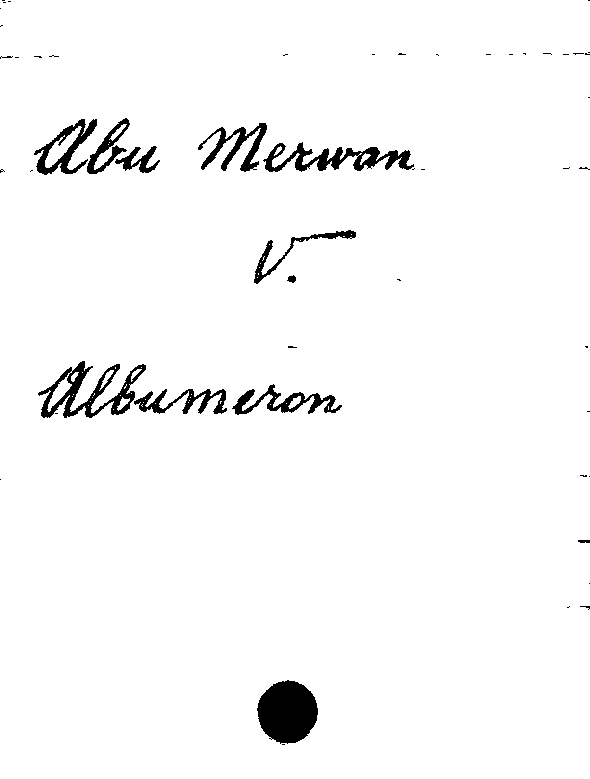 Abu Merwan
V.
Albumeron